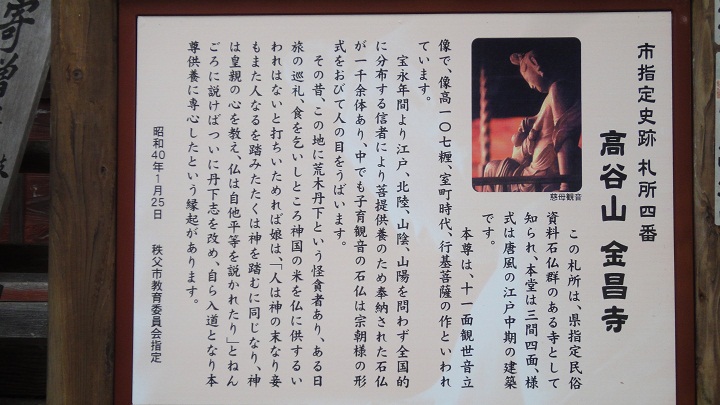 市指定史跡 札所四番
高谷山 金昌寺
この札所は、県指定民俗
資料石仏群のある寺として
知られ、本堂は三間四面、様
式は唐風の江戸中期の建築
です。
本尊は、十一面観世音立
像で、像高一〇七糎、室町時代、行基菩薩の作といわれ
ています。
宝永年間より江戸、北陸、山陰、山陽を問わず全国的
に分布する信者により菩提供養のため奉納された石仏
が一千余体あり、中でも子育観音の石仏は宗朝様の形
式をおびて人の目をうばいます。
その昔、この地に荒木丹下という怪貪者あり、ある日
旅の巡礼、食を乞いしところ神国の米を仏に供するい
われはないと打ちいためれば娘は、「人は神の末なり妾
もまた人なるを踏みたたくは神を踏むに同じなり、神
は皇親の心を教え、仏は自他平等を説かれたり」とねん
ごろに説けばついに丹下志を改め、自ら入道となり本
尊供養に専心したという縁起があります。
昭和40年1月25日 秩父市教育委員会指定
慈母観音
寄増